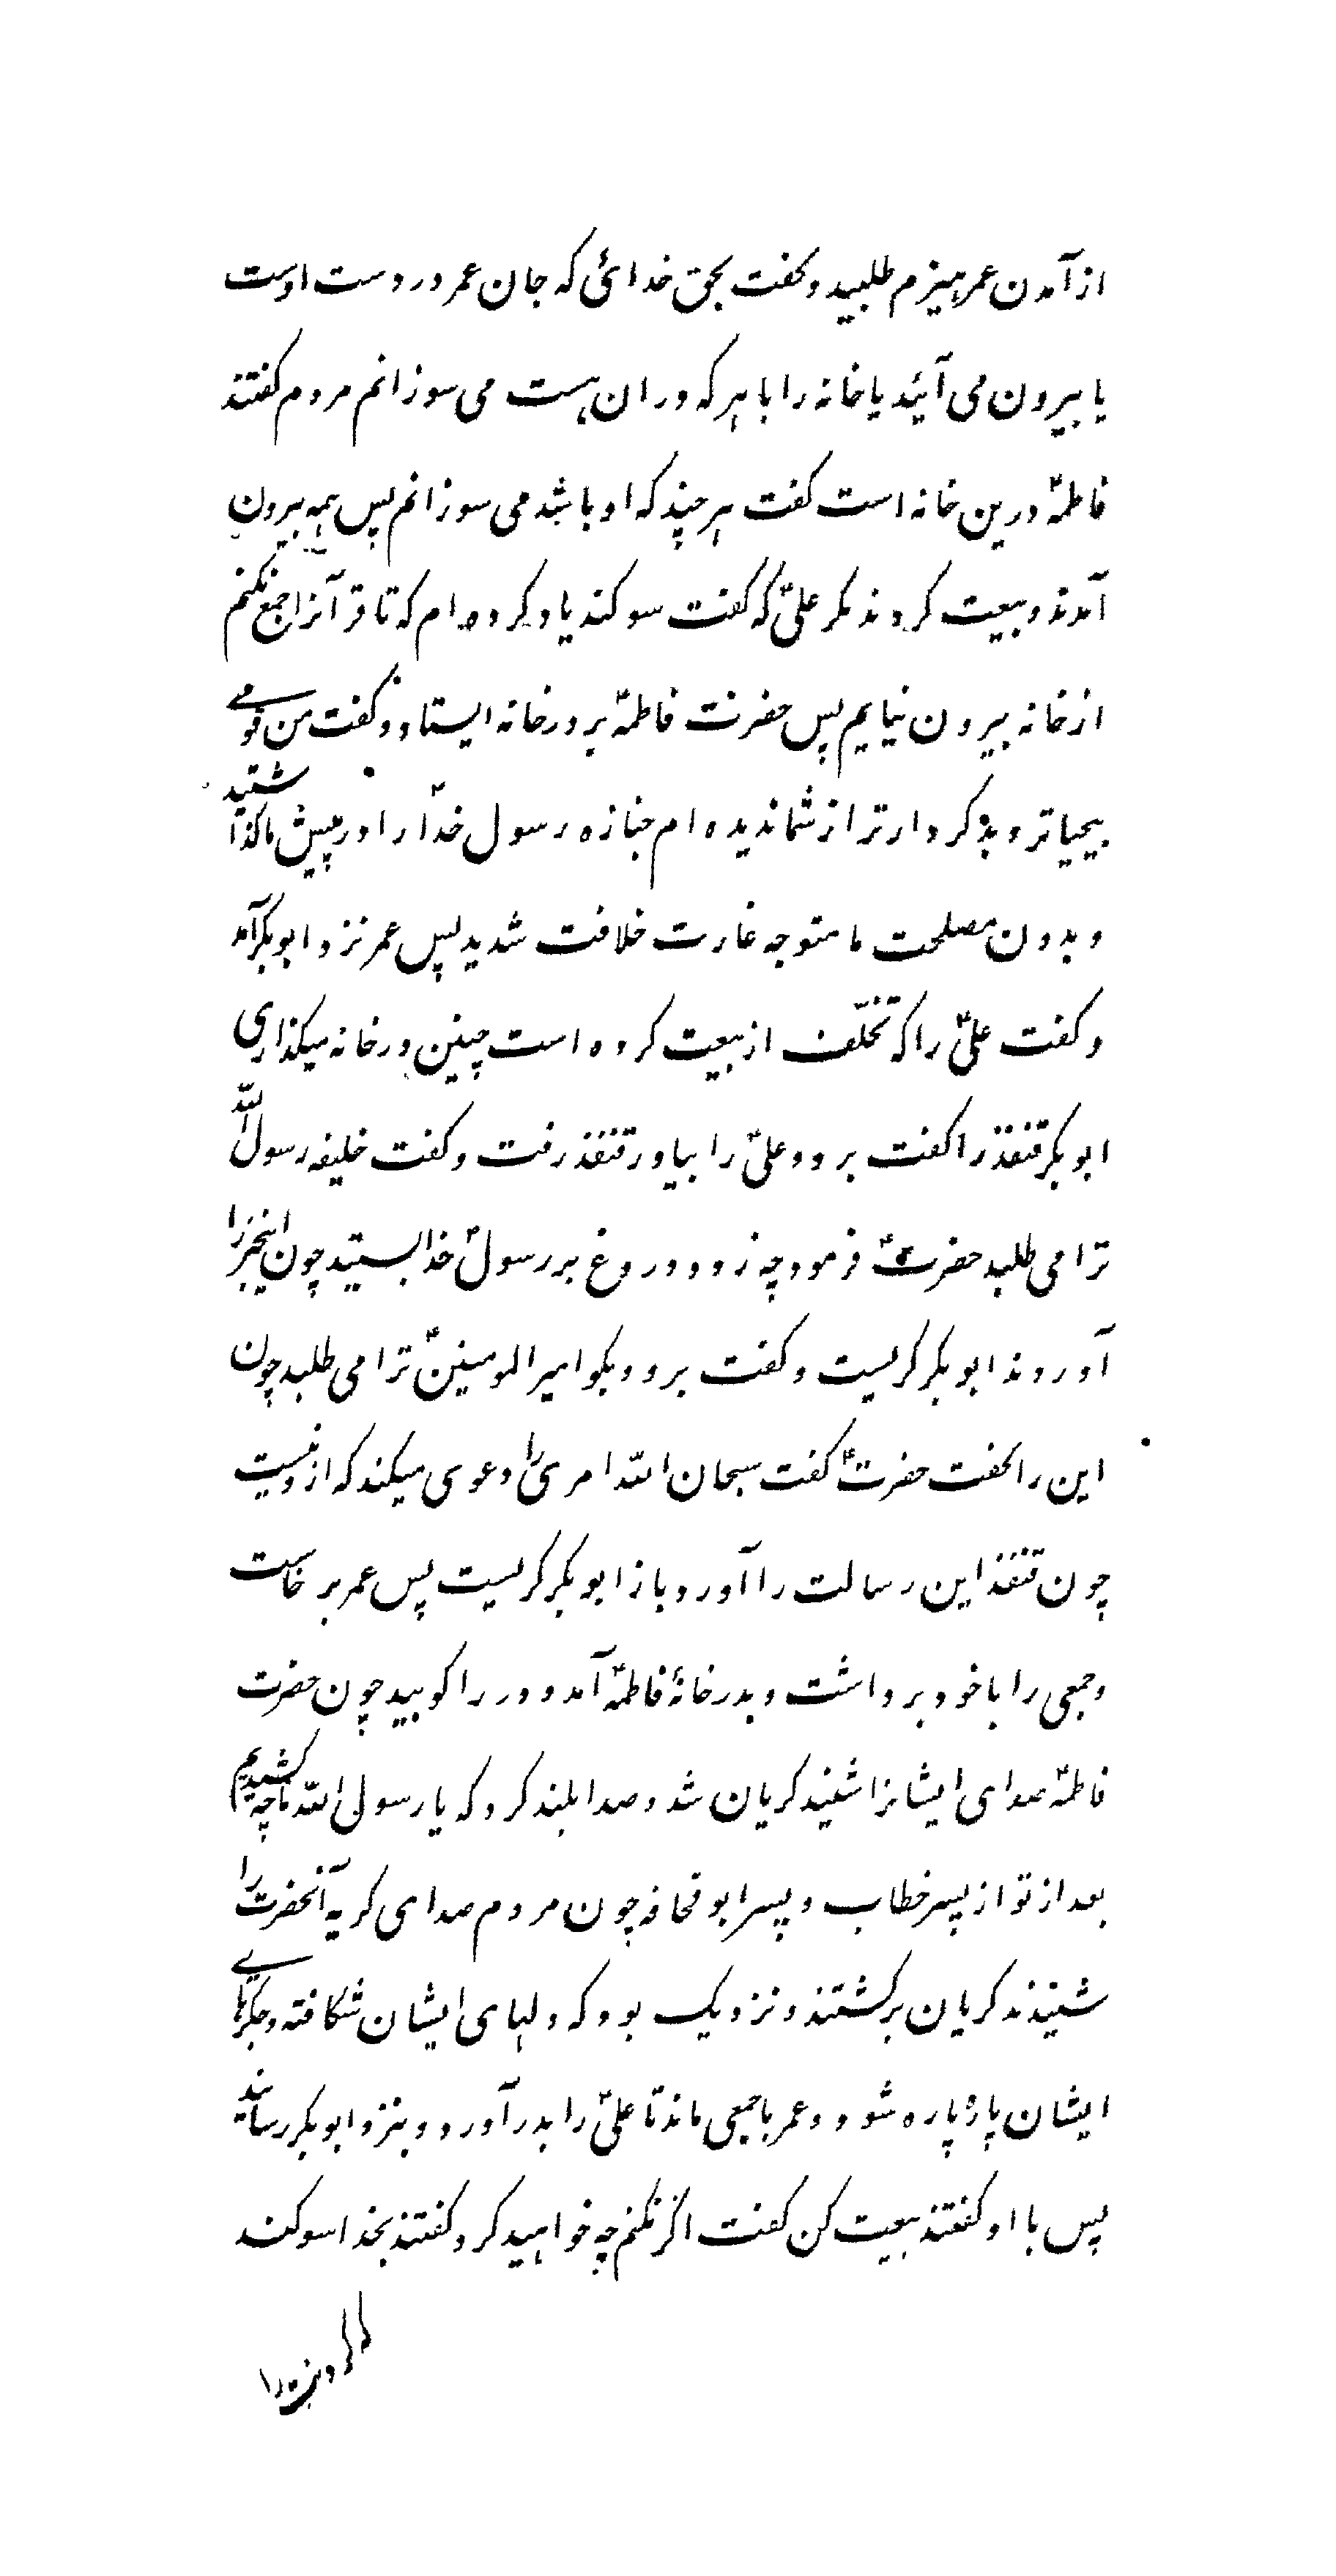 از آمدن عمر هیزم طلبید و گفت بحق خدائی که جان عمر در دست اوست
یا بیرون می آئید یا خانه را با هر که در ان هست می سوزانم مردم گفتند
فاطمهؑ درین خانه است گفت هر چند که او باشد می سوزانم پس همه بیرون
آمدند و بیعت کردند مگر علیؑ که گفت سوگند یاد کرده ام که تا قرآنرا جمع نکنم
از خانه بیرون نیایم پس حضرت فاطمهؑ بر در خانه ایستاد و گفت من قومی
بیحیاتر و بدکردارتر از شما ندیده ام جنازه رسول خداؐ را در پیش ما گذاشتید
و بدون مصلحت ما متوجه غارت خلافت شدید پس عمر نزد ابوبکر آمد
و گفت علیؑ را که تخلّف از بیعت کرده است چنین در خانه میگذاری
ابوبکر قنفذ را گفت برو و علیؑ را بیاور قنفذ رفت و گفت خلیفه رسول اللّه
ترا می طلبد حضرتؑ فرمود چه زود دروغ بر رسولؐ خدا بستید چون اینخبر را
آوردند ابوبکر گریست و گفت برو و بگو امیر المومنینؑ ترا می طلبد چون
این را گفت حضرتؑ گفت سبحان اللّه امری را دعوی میکند که از و نیست
چون قنفذ این رسالت را آورد باز ابوبکر گریست پس عمر برخاست
و جمعی را با خود برداشت و بدر خانهٔ فاطمهؑ آمد و در را کوبید چون حضرت
فاطمهؑ صدای ایشانرا شنید گریان شد و صدا بلند کرد که یا رسول اللّه ما چه کشیدیم
بعد از تو از پسر خطاب و پسر ابو قحافه چون مردم صدای گریه آنحضرت را
شنیدند گریان برگشتند و نزدیک بود که دلهای ایشان شکافته و جگرهای
ایشان پاره پاره شود و عمر با جمعی ماند تا علیؑ را بدر آورد و بنزد ابوبکر رسانید
پس با او گفتند بیعت کن گفت اگر نکنم چه خواهید کرد گفتند بخدا سوگند